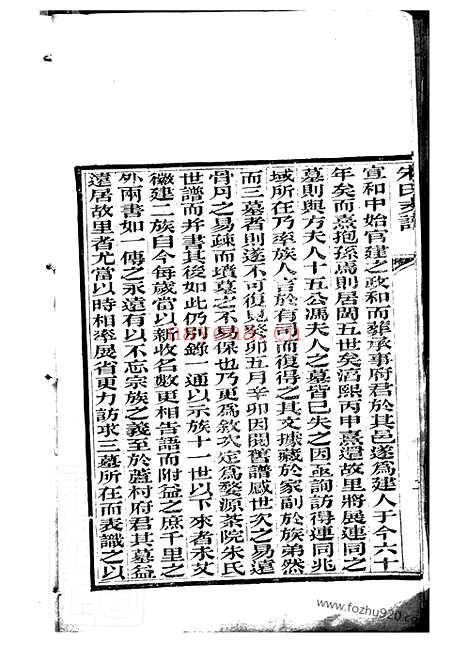 朱氏家譜
宣和中始官建之政和而葬承事府君於其邑遂為建人于今六十
年矣而熹抱孫焉則居閩五世矣淳熙丙申熹還故里將展連同之
墓則與方夫人十五公馮夫人之墓皆已失之因亟詢訪得連同兆
域所在乃率族人言於有司而復得之其文據藏於家副於族弟然
而三墓者則遂不可復見癸卯五月辛卯因閱舊譜感世次之易遠
骨肉之易疎而墳墓之不易保也乃更為敘次定為婺源茶院朱氏
世譜而并書其後如此仍錄一通以示族十一世以下來者未艾
徽建二族自今每歲當以新收名數更相告語而附益之庶千里之
外兩書如一傳之永遠有以不忘宗族之義至於蘆村府君其墓益
遠居故里者尤當以時相率展省更力訪求三墓所在而表識之以
nayona.cn
www.fozhu920.com